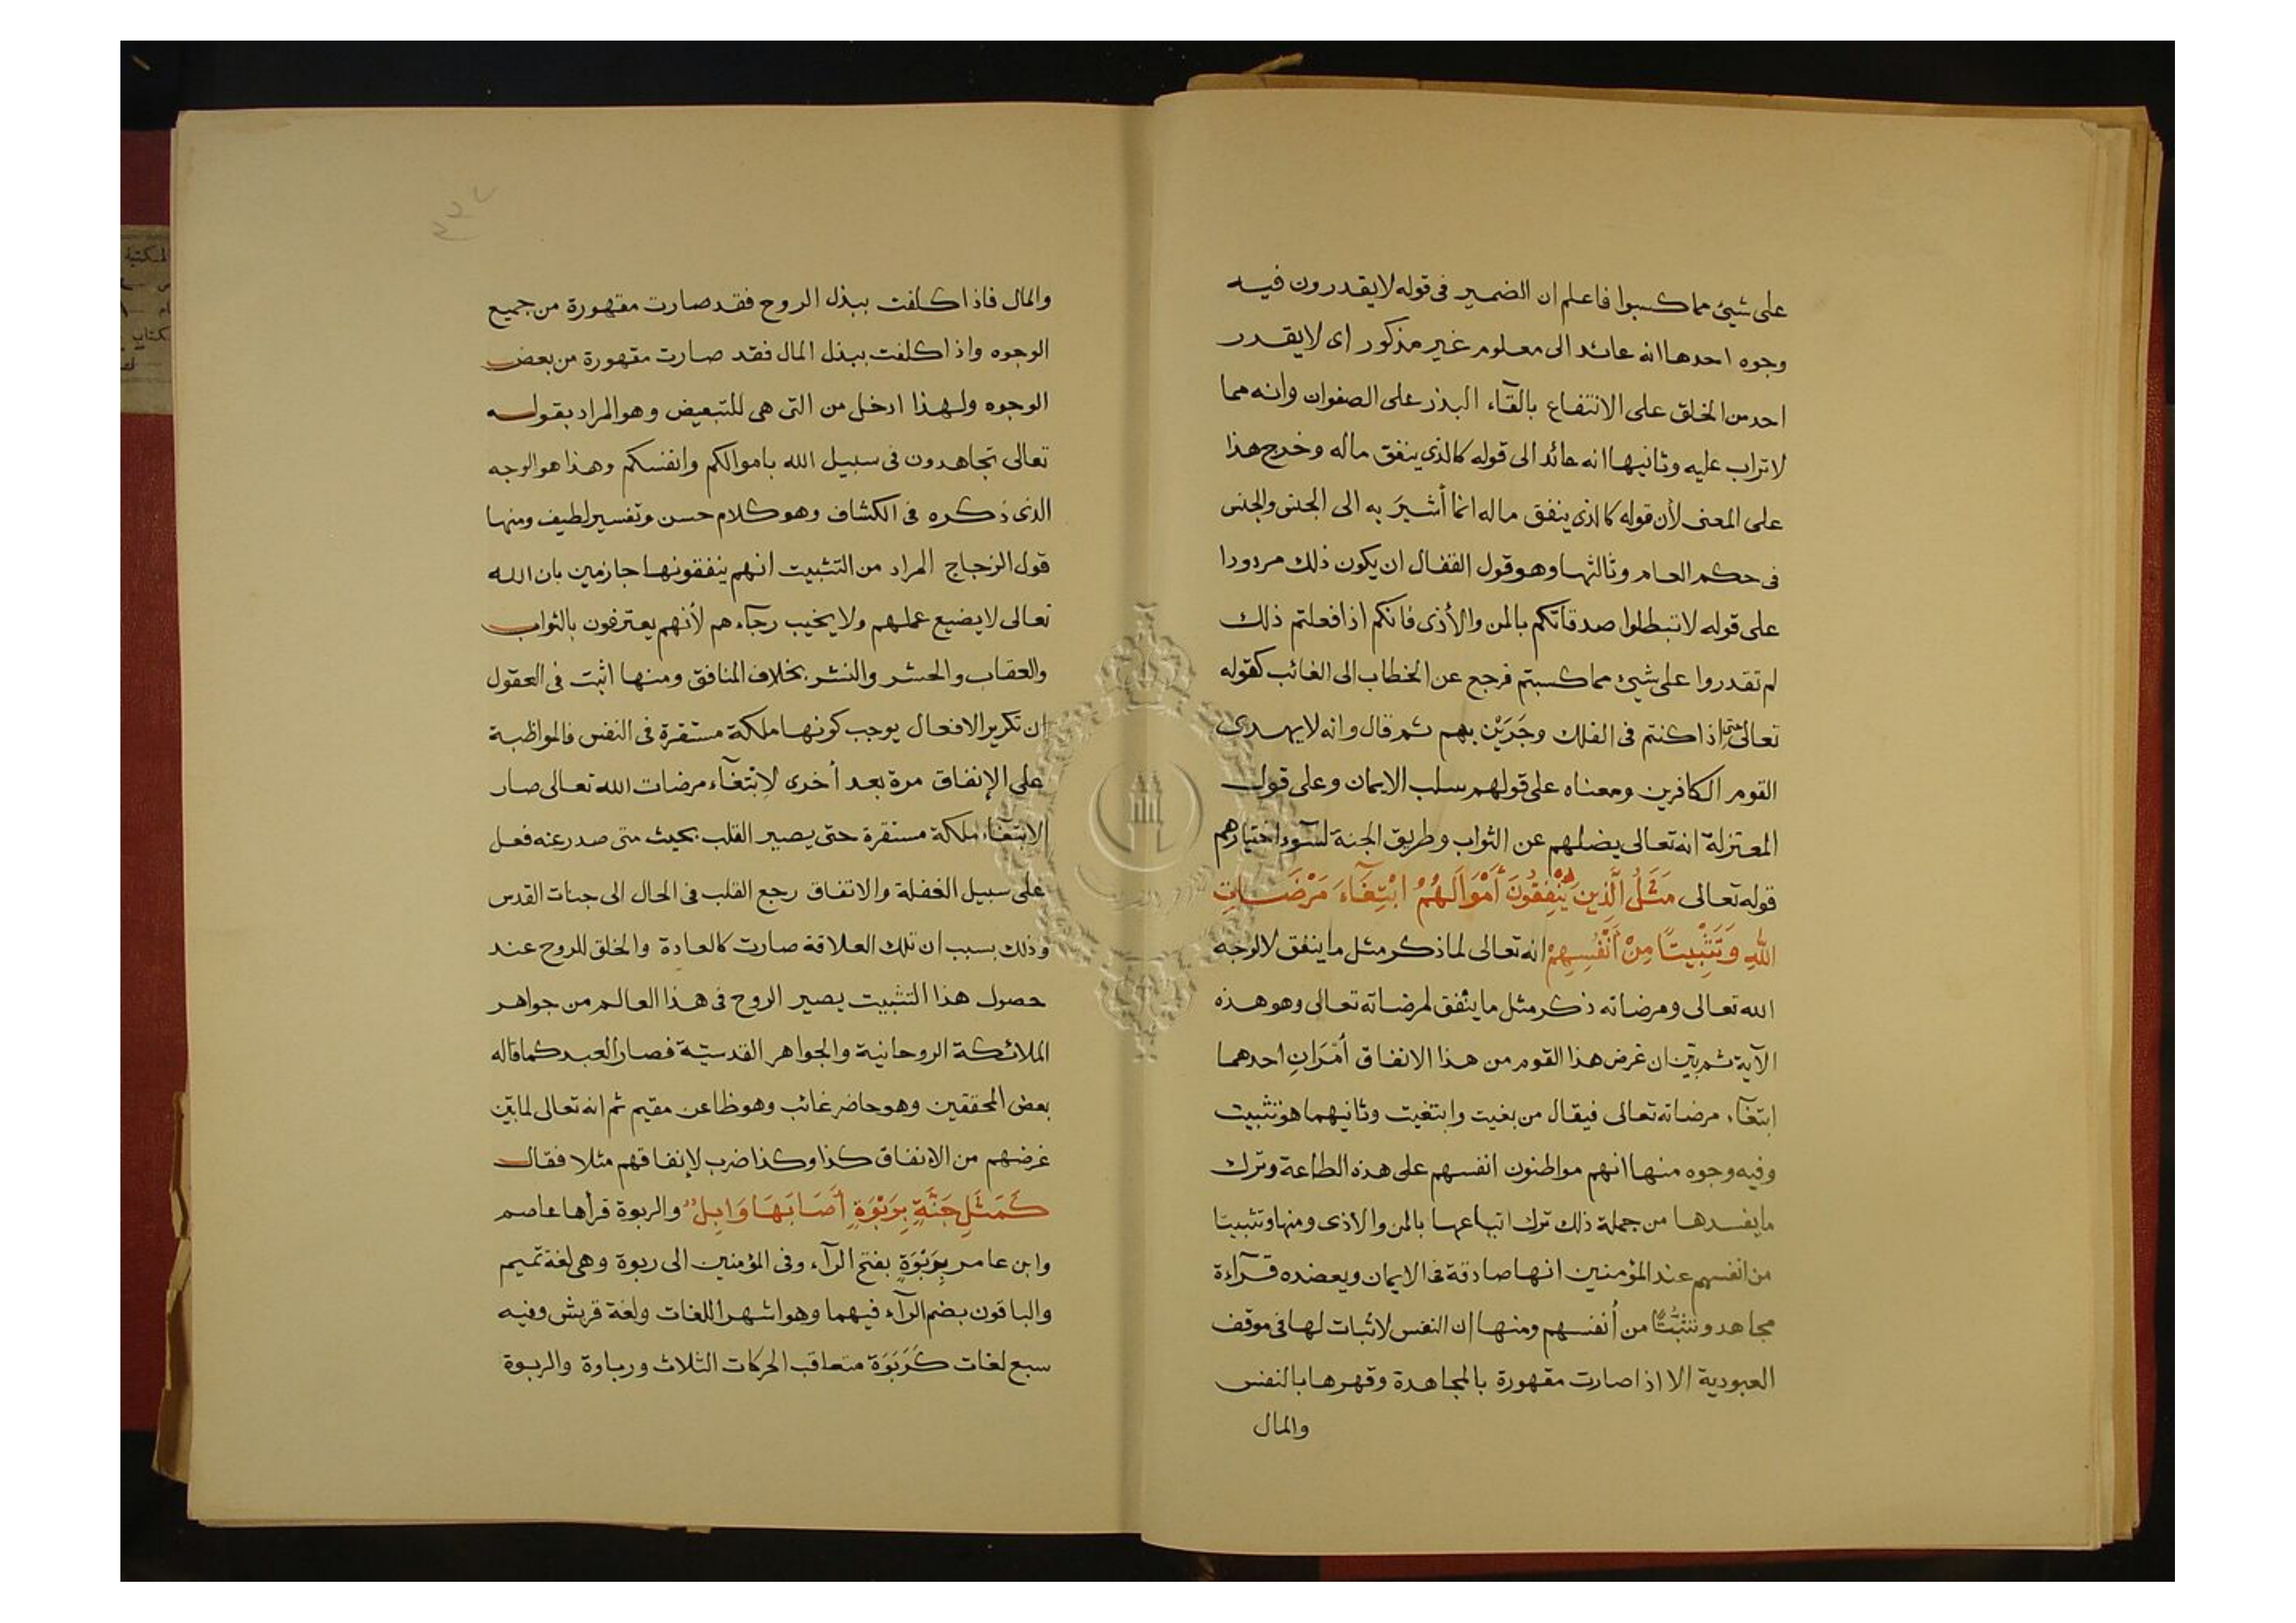 على شيئ مما كسبوا فاعلم ان الضمير فى قوله لا يقدرون فيه
وجوه احدها انه عائد الى معلوم غير مذكور اى لا يقدر
احد من الخلق على الانتفاع بالقآء البذر على الصفوان وانه مما
لا تراب عليه وثانيها انه عائد الى قوله كالذى ينفق ماله وخرج هذا
على المعنى لأن قوله كالذى ينفق ماله انما أشيرَ به الى الجنس والجنس
فى حكم العام وثالثها وهو قول القفال ان يكون ذلك مردودا
على قوله لا تبطلوا صدقاتكم بالمن والأذى فانكم اذا فعلتم ذلك
لم تقدروا على شيئ مما كسبتم فرجع عن الخطاب الى الغائب كقوله
تعالى حتى اذا كنتم فى الفلك وجَرَيْن بهم ثم قال وانه لا يهدى
القوم الكافرين ومعناه على قولهم سلب الايمان وعلى قول
المعتزلة انه تعالى يضلهم عن الثواب وطريق الجنة لسوء اختيارهم
قوله تعالى مَثَلُ الَّذِينَ يُنْفِقُونَ أَمْوَالَهُمُ ابْتِغَآءَ مَرْضَاتِ
اللّٰهِ وَتَثْبِيتًا مِنْ أَنْفُسِهِمْ انه تعالى لما ذكر مثل ما ينفق لا لوجه
الله تعالى ومرضاته ذكر مثل ما ينفق لمرضاته تعالى وهو هذه
الآية ثم بيّن ان غرض هذا القوم من هذا الانفاق أمْرَانِ احدهما
ابتغآء مرضاته تعالى فيقال من بغيت وابتغيت وثانيهما هو تثبيت
وفيه وجوه منها انهم مواطنون انفسهم على هذه الطاعة وترك
ما يفسدها من جملة ذلك ترك اتباعها بالمن والاذى ومنها وتثبيتا
من انفسهم عند المؤمنين انها صادقة فى الايمان ويعضده قرآءة
مجاهد وتثبُّتًا من أنفسهم ومنها ان النفس لا ثبات لها فى موقف
العبودية الا اذا صارت مقهورة بالمجاهدة وقهرها بالنفس
والمال
والمال فاذا كلفت ببذل الروح فقد صارت مقهورة من جميع
الوجوه واذا كلفت ببذل المال فقد صارت مقهورة من بعض
الوجوه ولهذا ادخل من التى هى للتبعيض وهو المراد بقوله
تعالى تجاهدون فى سبيل الله باموالكم وانفسكم وهذا هو الوجه
الذى ذكره فى الكشاف وهو كلام حسن وتفسير لطيف ومنها
قول الزجاج المراد من التثبيت انهم ينفقونها جازمين بان الله
تعالى لا يضيع عملهم ولا يخيب رجآءهم لأنهم يعترفون بالثواب
والعقاب والحشر والنشر بخلاف المنافق ومنها اثبت فى العقول
ان تكرير الافعال يوجب كونها ملكة مستقرة فى النفس فالمواظبة
على الإنفاق مرة بعد أخرى لابْتغآء مرضات الله تعالى صار
الابتغآء ملكة مستقرة حتى يصير القلب بحيث متى صدر عنه فعل
على سبيل الغفلة والاتفاق رجع القلب فى الحال الى جناب القدس
وذلك بسبب ان تلك العلاقة صارت كالعادة والخلق للروح عند
حصول هذا التثبيت يصير الروح فى هذا العالم من جواهر
الملائكة الروحانية والجواهر القدسيّة فصار العبد كما قاله
بعض المحققين وهو حاضر غائب وهو ظاعن مقيم ثم انه تعالى لما بيّن
غرضهم من الانفاق كذا وكذا ضرب لإنفاقهم مثلا فقال
كَمَثَلِ جَنَّةٍ بِرَبْوَةٍ أَصَابَهَا وَابِلٌ والربوة قرأها عاصم
وابن عامر بِرَبْوَةٍ بفتح الرآء وفى المؤمنين الى ربوة وهى لغة تميم
والباقون بضم الرآء فيهما وهو اشهر اللغات ولغة قريش وفيه
سبع لغات كَرَبْوَة متعاقب الحركات الثلاث ورباوة والربوة